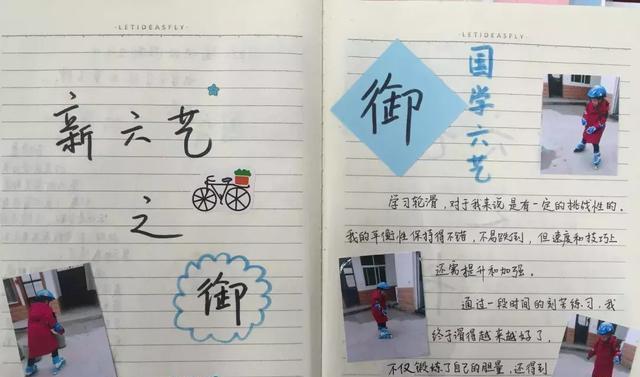 ·LETIDEASFLY·
新六艺
之
御
·LETIDEASFLY·
御
国学六艺
学习轮滑，对于我来说是有一定的挑战性的。
我的平衡性保持得不错，不易跌倒，但速度和技巧上
还需提升和加强。
通过一段时间的刻苦练习，我
终于滑得越来越好了。
不仅锻炼了自己的胆量，还得到